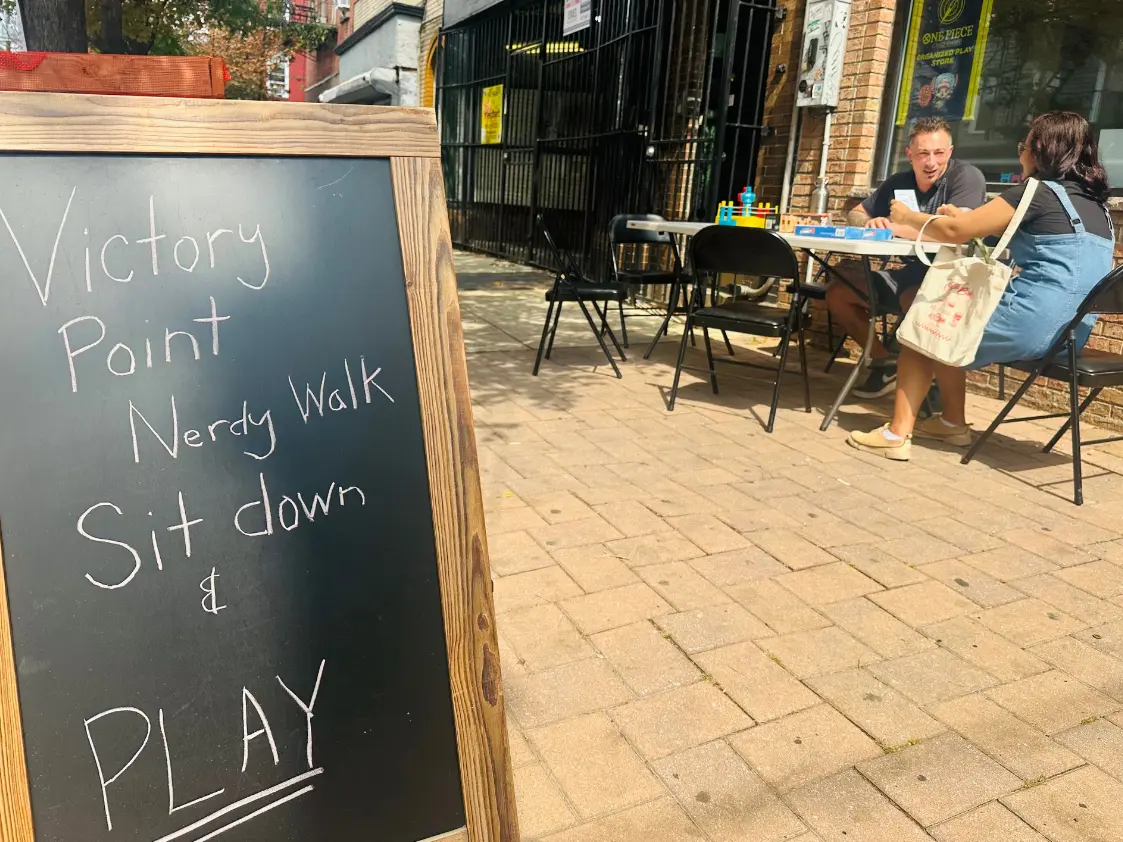 Victory
Point
Nerdy Walk
Sit down
&
PLAY
ONE PIECE
ORGANIZED PLAY
STORE